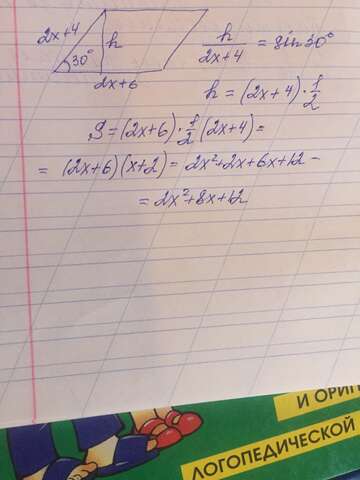 2x+4
30°
h
2x+6
h/(2x+4) = sin30°
h = (2x+4)·1/2
S=(2x+6)·1/2(2x+4)=
= (2x+6)(x+2)= 2x²+2x+6x+12 -
= 2x²+8x+12
И ОРИ
ЛОГОПЕДИЧЕСКОЙ